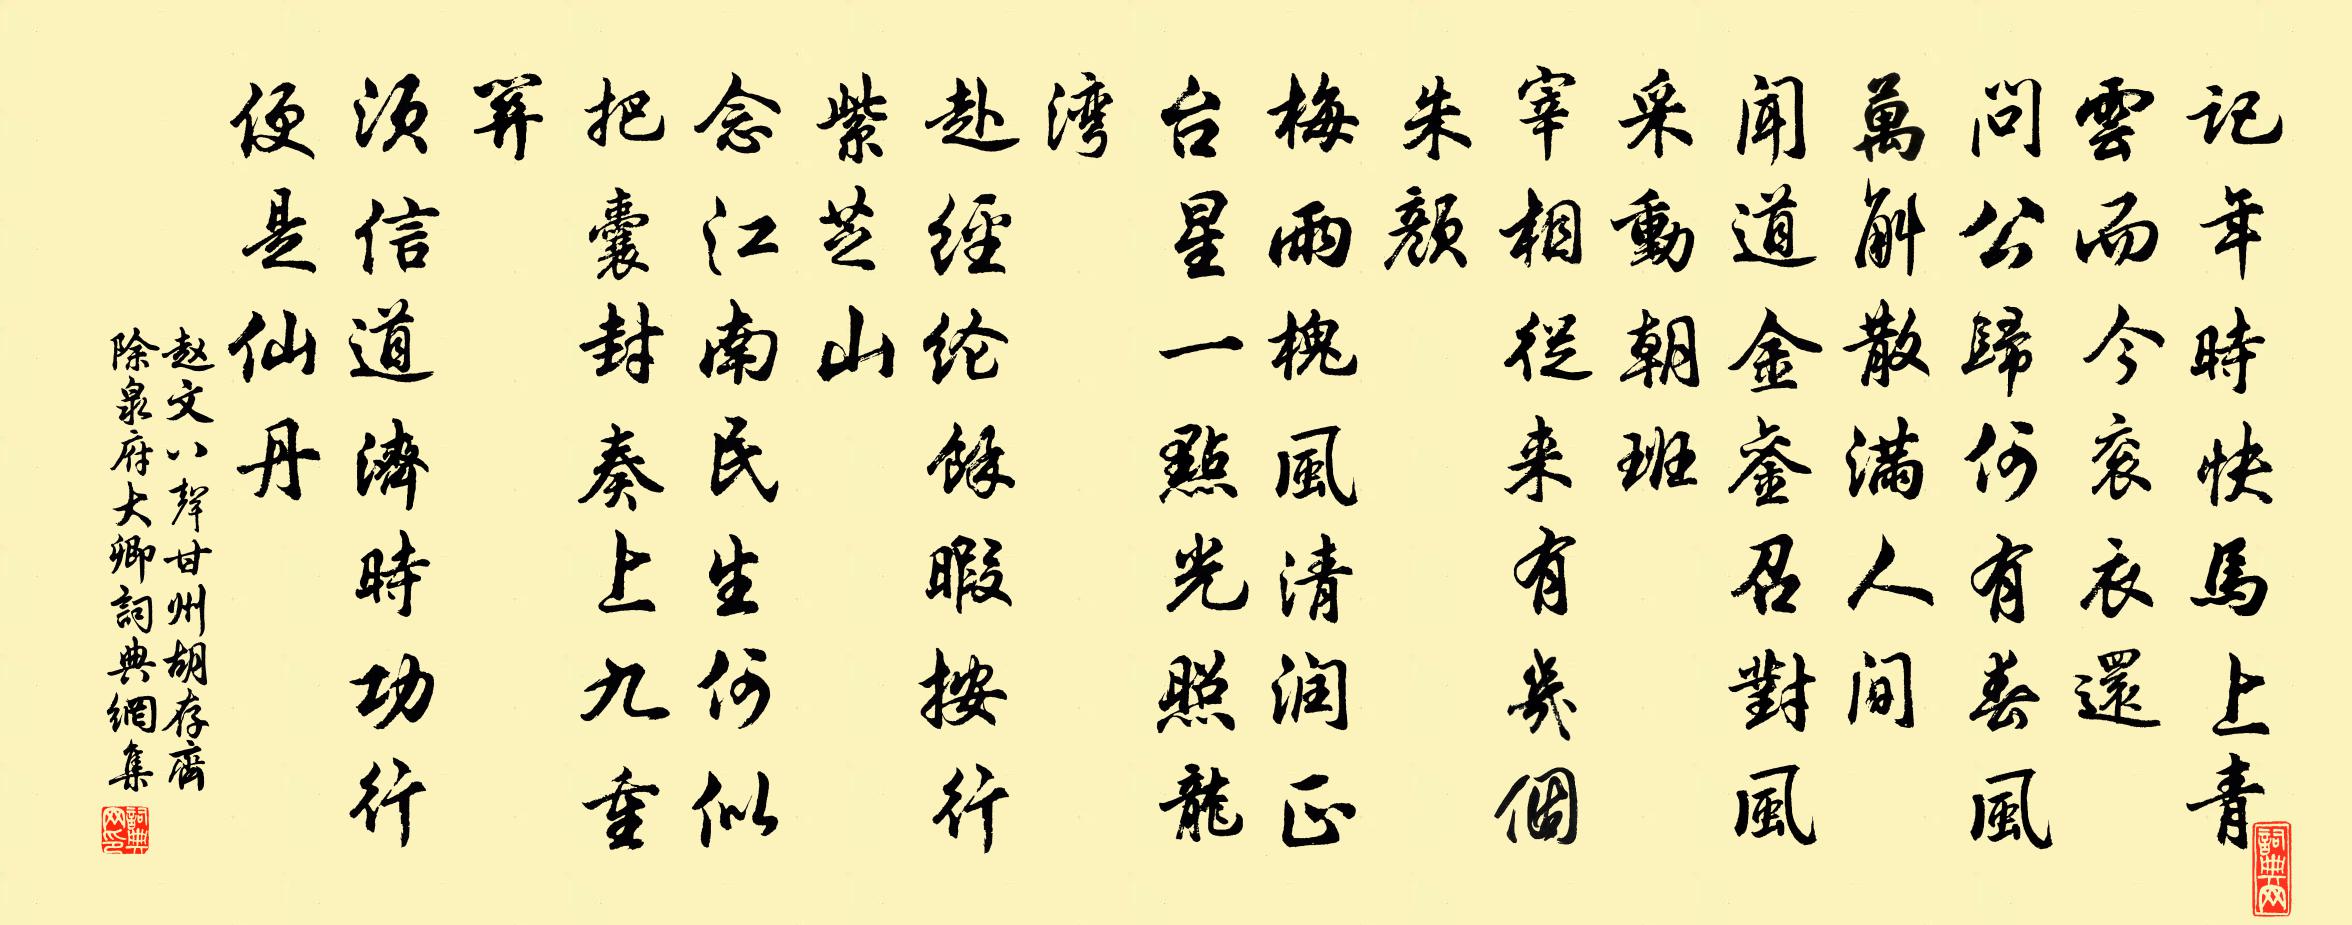 記年時快馬上青
雲而今衮衣還
問公歸何有春風
萬斛散滿人间
闻道金銮召對風
采動朝班
宰相從来有幾個
朱顔
梅雨槐風清润正
台星一點光照龍
湾
赴經纶餘暇按行
紫芝山
念江南民生何似
把囊封奏上九重
關
須信道濟時功行
便是仙丹
赵文八聲甘州胡存齊
除泉府大卿詞典網集
詞典网
詞典网印